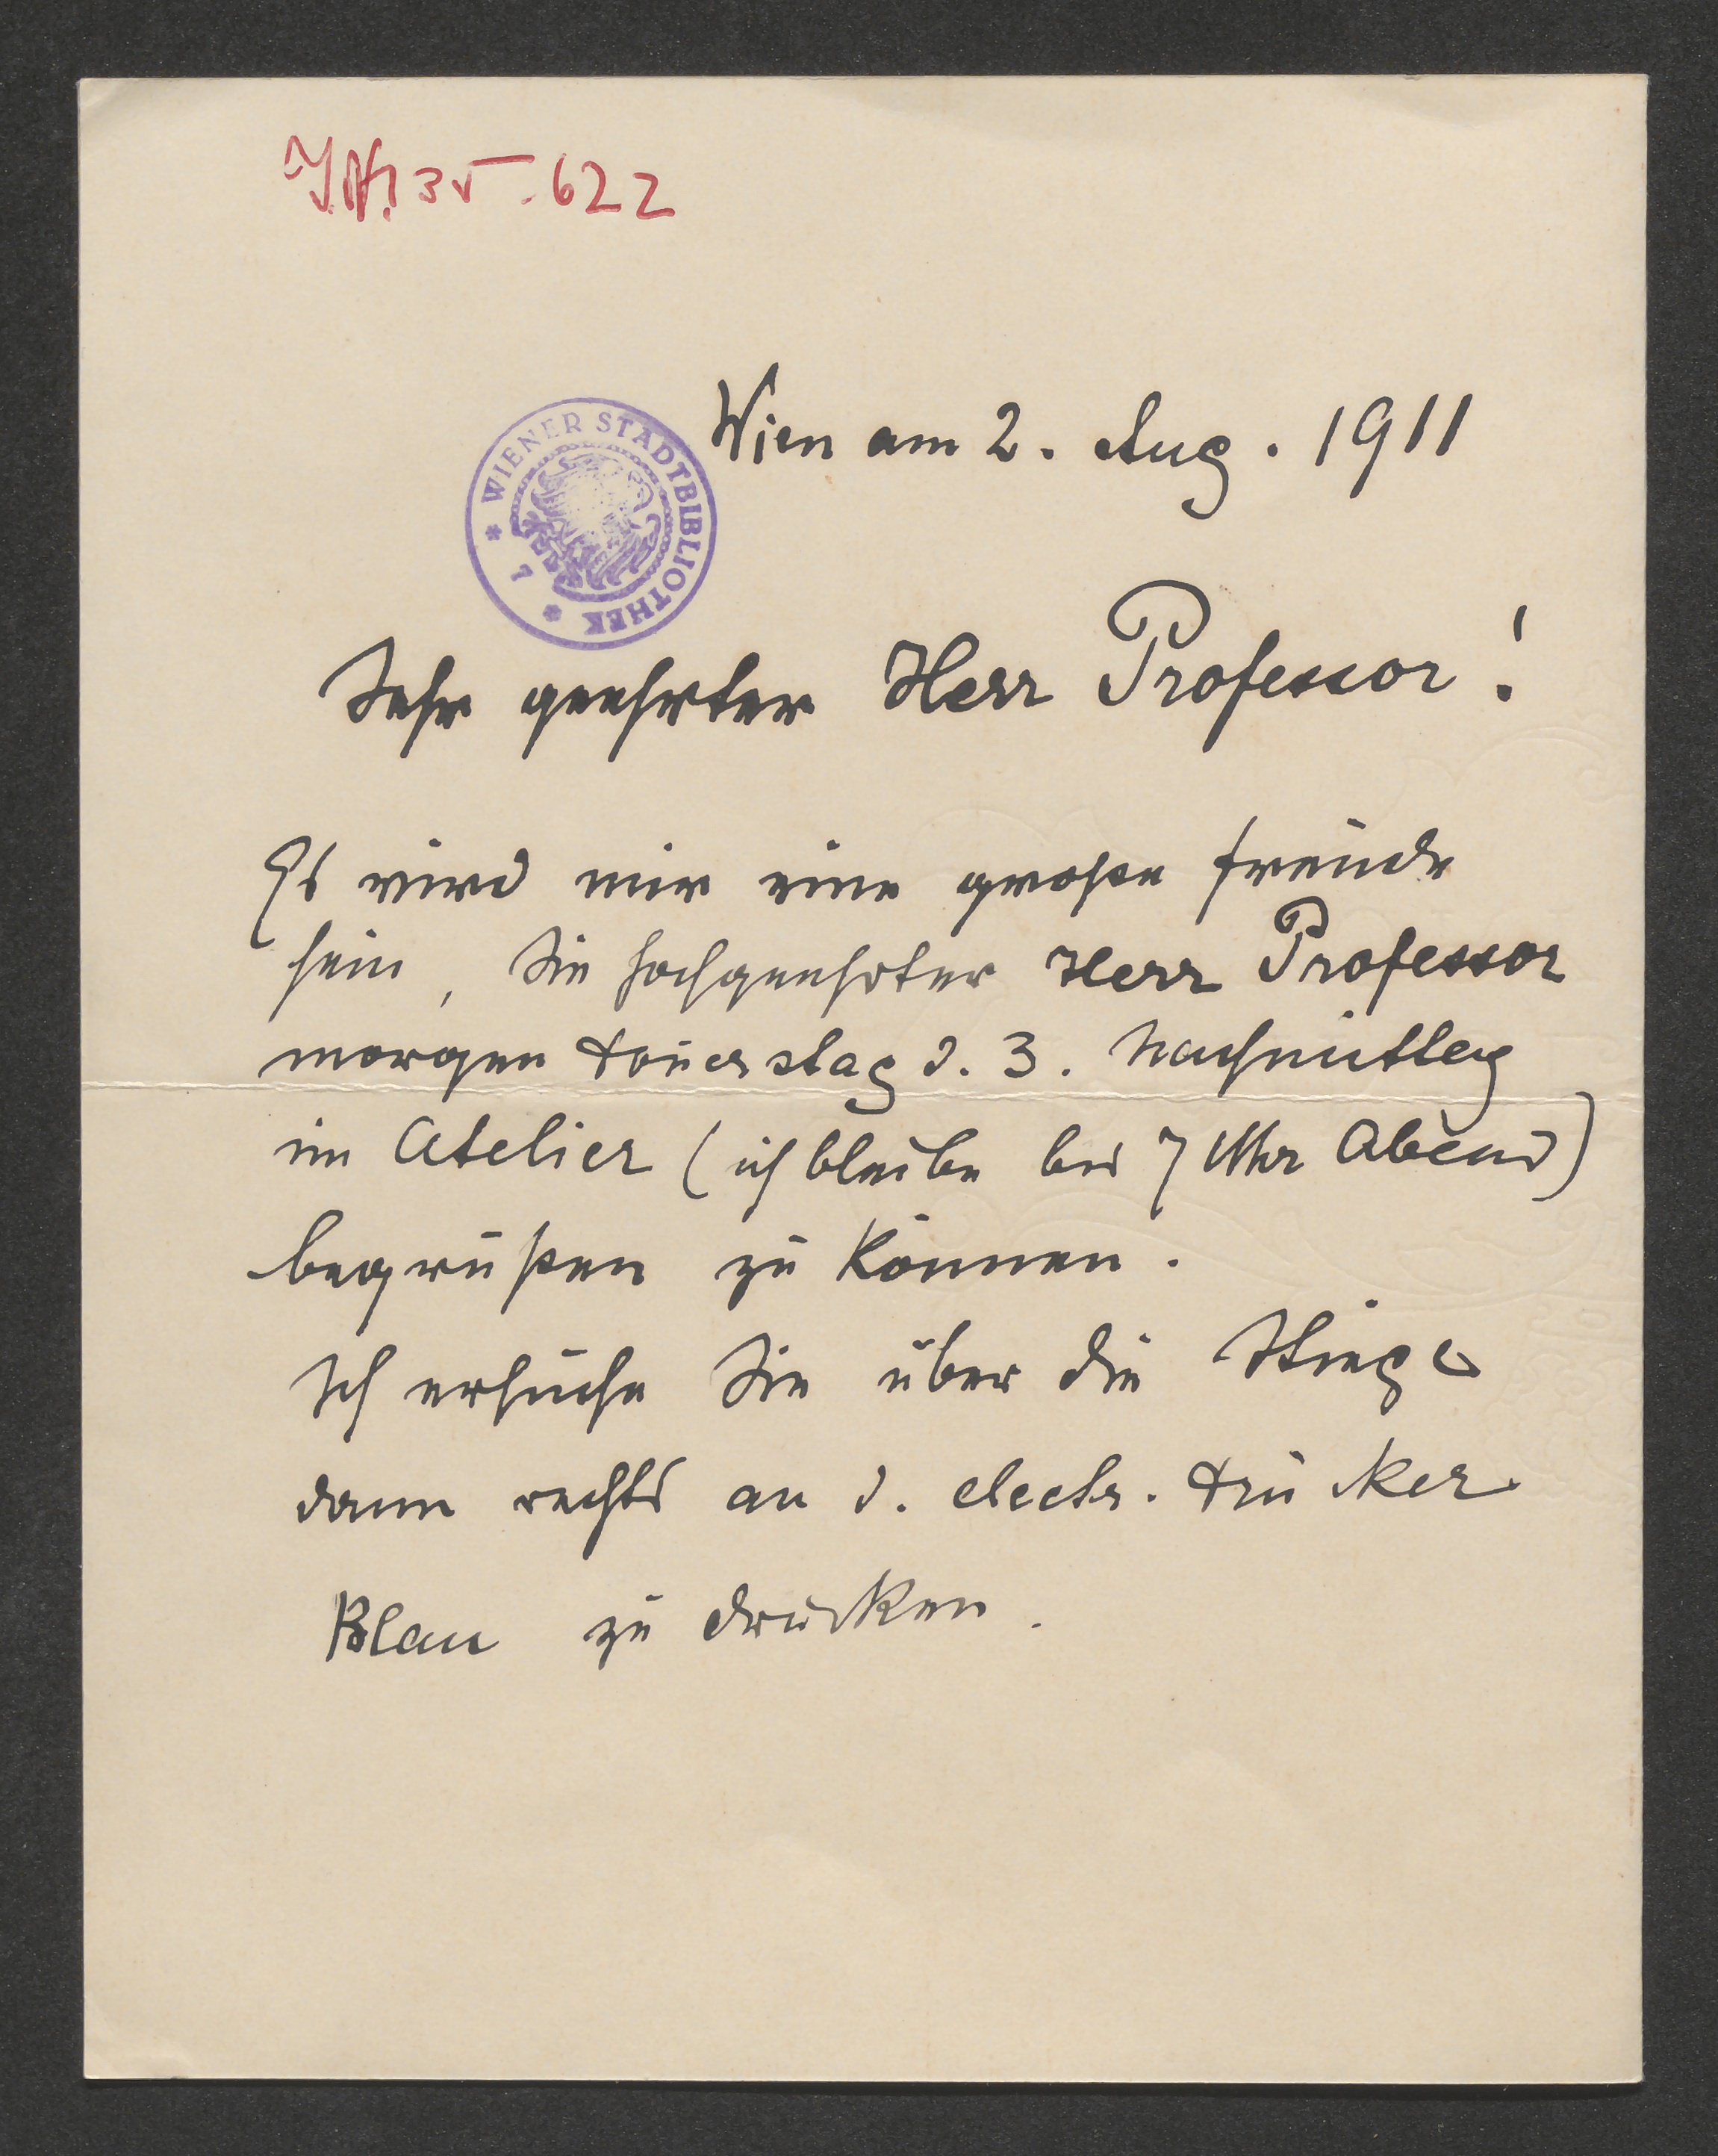 I.N. 35.622
WIENER STADTBIBLIOTHEK
Wien am 2. Aug. 1911
Sehr geehrter Herr Professor!
Es wird mir eine große Freude
sein, Sie hochgeehrter Herr Professor
morgen Donerstag d. 3. Nachmittag
im Atelier (ich bleibe bis 7 Uhr Abend)
begrüßen zu können.
Ich ersuche Sie über die Stiege
dann rechts an d. electr. Drücker
Blau zu drücken.